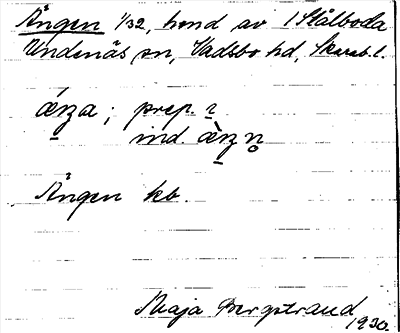 Ängen 1/32, hmd av 1 Stålboda
Undenäs sn, Vadsbo hd, Skarab. l.
prep. i
ind.
Ängen kb.
Maja Bergstrand
1930.